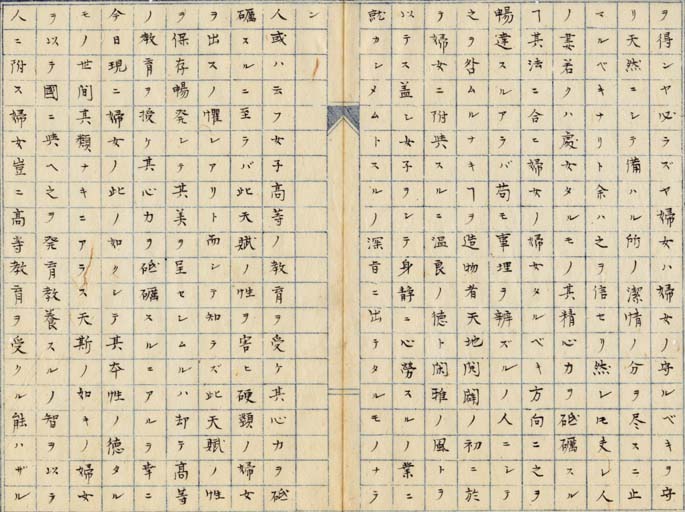 ヲ得ンヤ必ラズヤ婦女ハ婦女ノ守ルベキヲ守
リ天然ニシテ備ハル所ノ潔情ノ分ヲ尽スニ止
マルベキナリト余ハ之ヲ信セリ然レモ吏レ人
ノ妻若クハ處女タルモノ其精心力ヲ砥礪スル
ヿ其法ニ合ヒ婦女ノ婦女タルベキ方向ニ之ヲ
暢達スルアラバ苟モ事理ヲ辨ズルノ人ニシテ
之ヲ咎ムルナキヿヲ造物者天地開闢ノ初ニ於
テ婦女ニ附與スルニ温良ノ徳ト閑雅ノ風トヲ
以テス蓋シ女子ヲシテ身静ニ心勞スルノ業ニ
就カシメムトスルノ深旨ニ出テタルモノナラ
ン
人或ハ云フ女子高等ノ教育ヲ受ケ其心力ヲ砥
礪スルニ至ラバ此天賦ノ性ヲ害ヒ硬頸ノ婦女
ヲ出スノ懼レアリト而シテ知ラズ此天賦ノ性
ヲ保存暢発シテ其美ヲ呈セシムルハ却テ高等
ノ教育ヲ授ケ其心力ヲ砥礪スルニアルヲ幸ニ
今日現ニ婦女ノ此ノ如クシテ其本性ノ徳タル
モノ世間其類ナキニアラス天斯ノ如キノ婦女
ヲ以テ國ニ與ヘ之ヲ発育教養スルノ智ヲ以テ
人ニ附ス婦女豈ニ高等教育ヲ受クル能ハザル